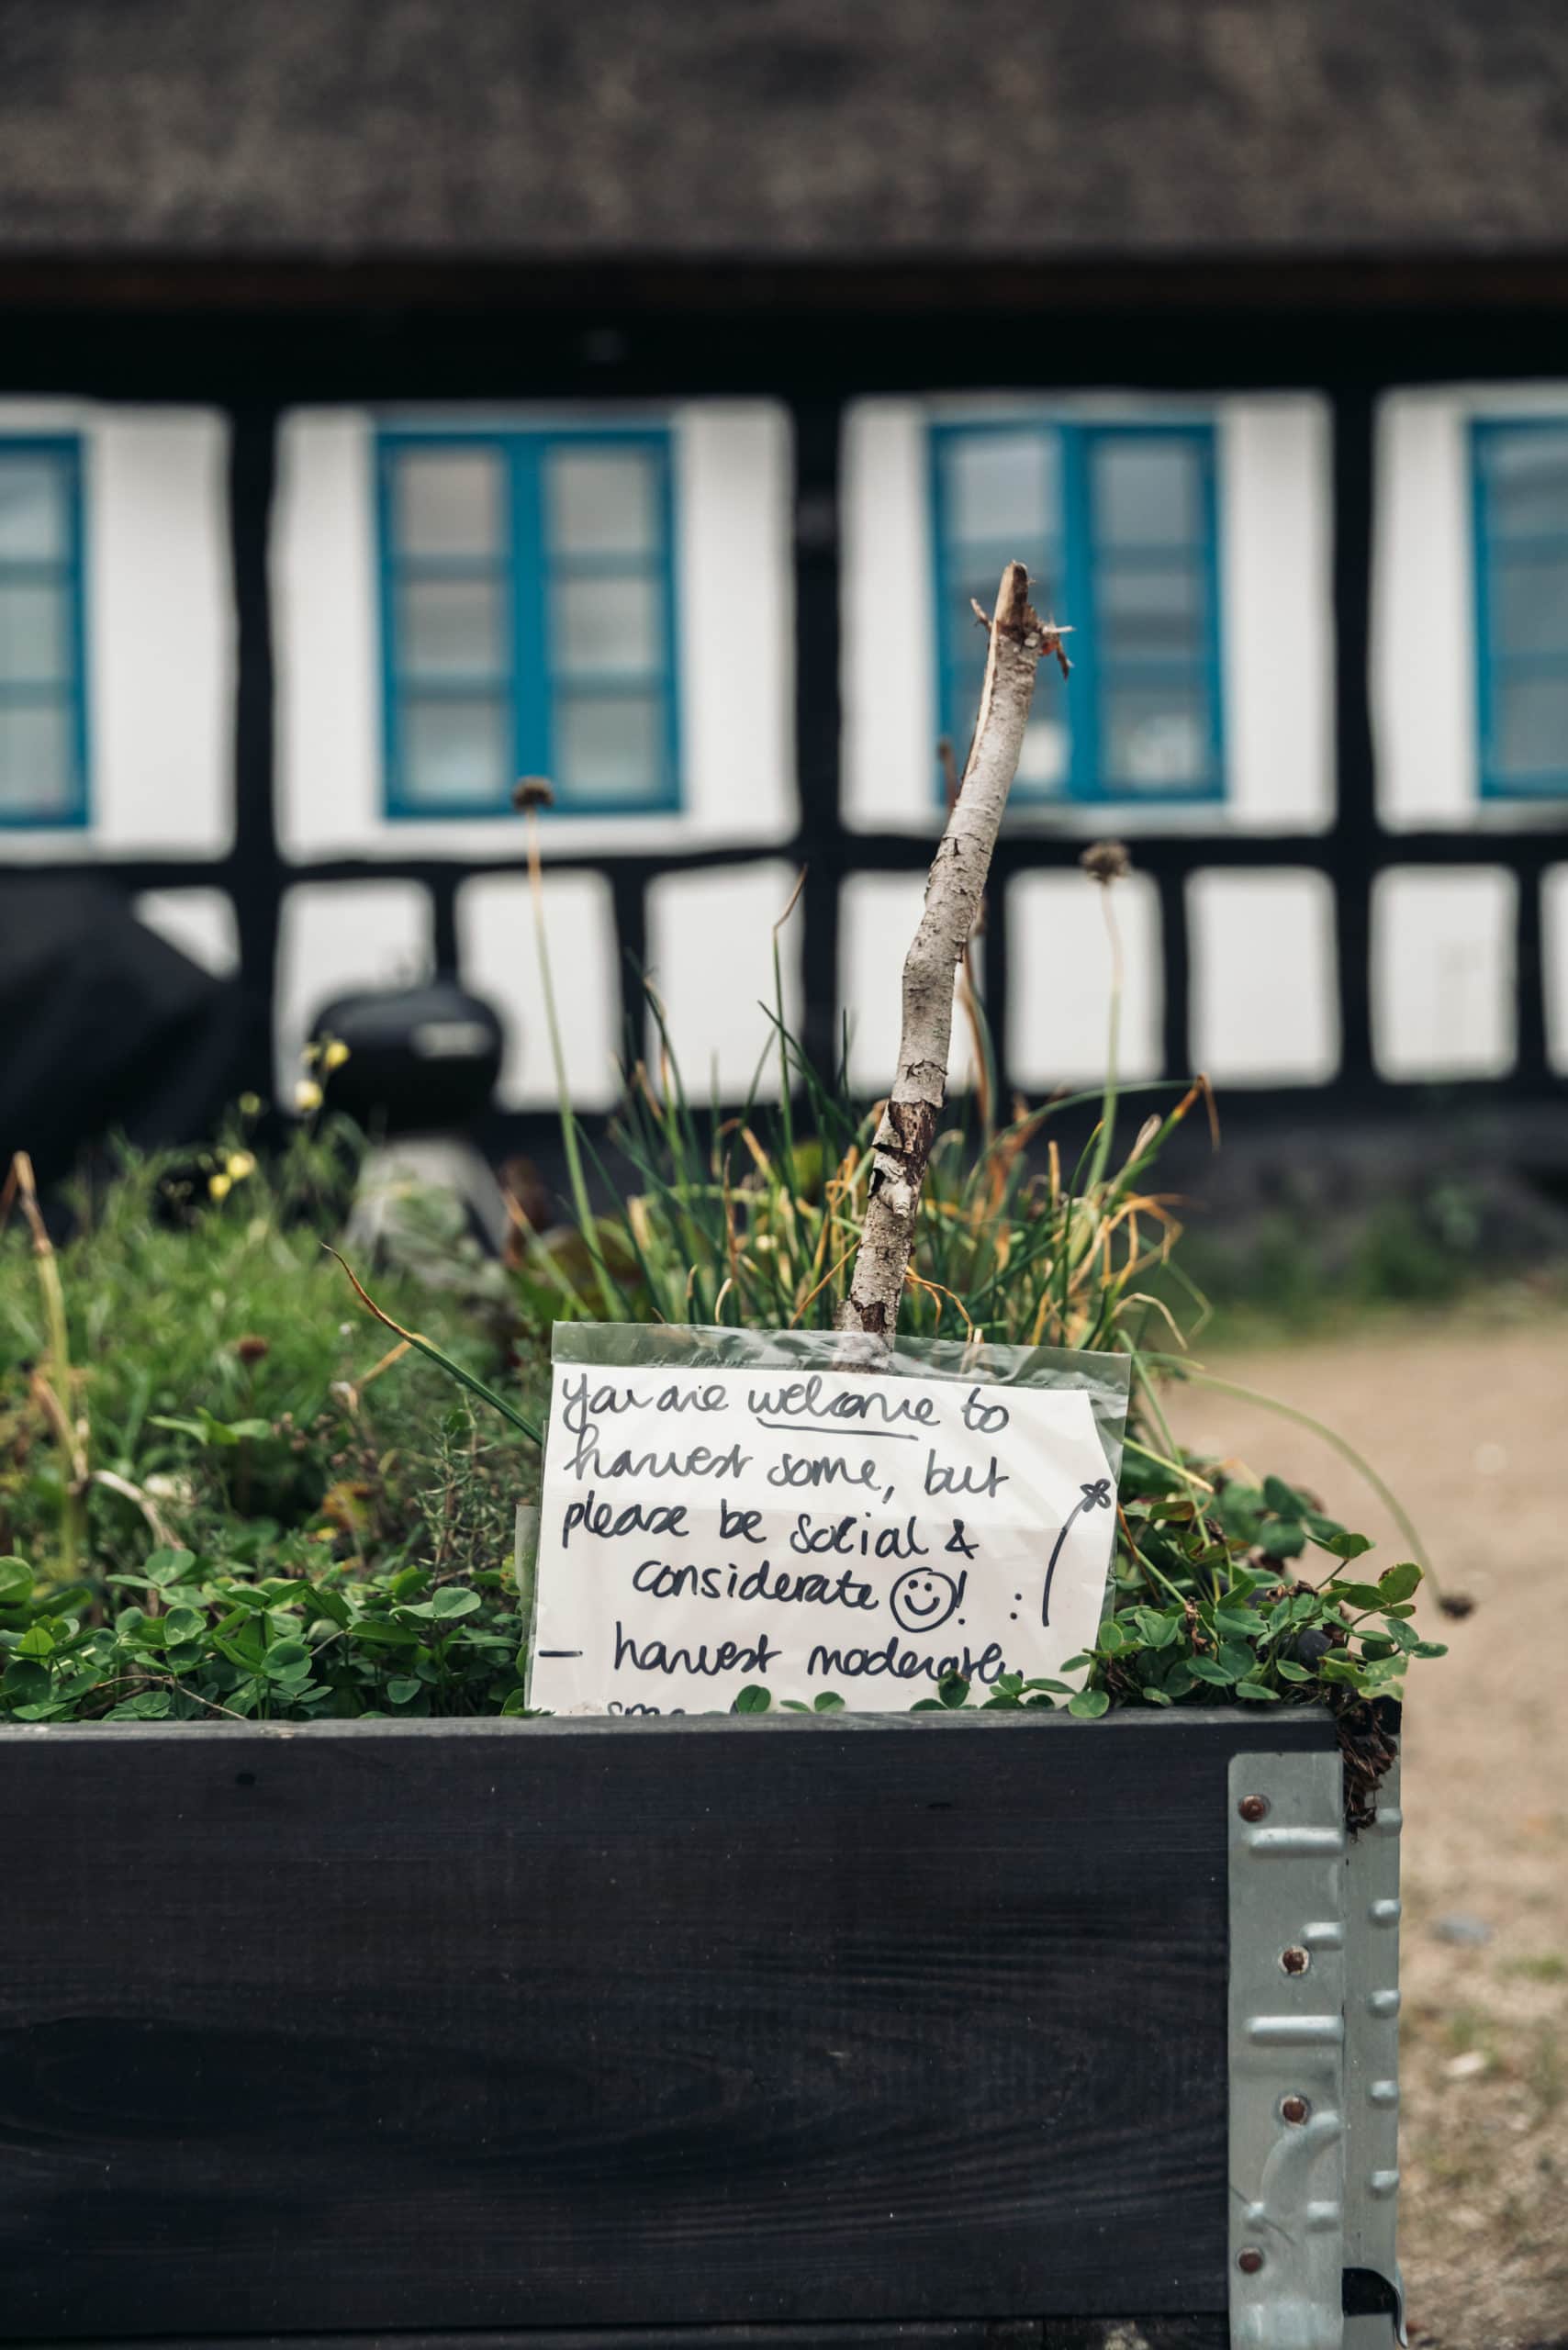 You are welcome to
harvest some, but
please be social &
considerate ☺! :
— harvest moderately